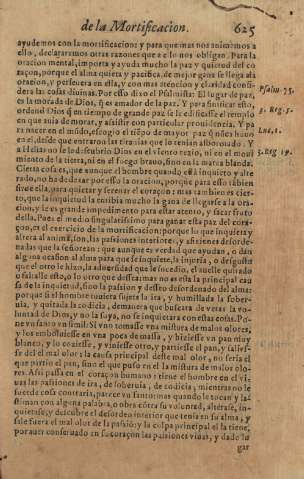 de la Mortificacion. 625
ayudemos con la mortificacion: y para que mas nos animemos a
ello, declararemos otras razones que a ello nos obligan. Para la
oracion mental, importa y ayuda mucho la paz y quietud del co
raçon, porque el alma quieta y pacifica, de mejor gana se llega a la
oracion, y persevera en ella, y con mas atencion y claridad consi-
dera las cosas divinas. Por esso dixo el Psalmista. El lugar de paz
es la morada de Dios, que es amador de la paz. Y para significar esto,
ordenò Dios que en tiempo de grande paz se le edificasse el templo
en que avia de morar, y assistir con particular providencia. Y pa
ra nacer en el mundo, escogio el tiempo de mayor paz
en el, desde que entraron las tiranias que le tenian alborotado. Y
a Elias no se le descubriò Dios en el viento rezio, ni en el movi
miento de la tierra, ni en el fuego bravo, sino en la marea blanda.
Cierta cosa es, que aunque el hombre quando està inquieto y alte
rado, no ha de dexar por esso la oracion, porque para esso tambien
sirve ella, para quietar y serenar el coraçon: mas tambien es cier-
to, que la inquietud la entibia mucho la gana de llegarse a la ora-
cion, y le es grande impedimento para estar atento, y sacar fruto
della. Pues el medio singularissimo para ganar esta paz del cora-
çon, es el exercicio de la mortificacion: porque lo que inquieta y
altera al animo, son las passiones interiores, y aficiones desorde-
nadas que la señorean: que aunque es verdad que ayudan, o dan
alguna ocasion al alma para que se inquiete, la injuria, o disgusto
que el otro le hizo, la adversidad que le sucediò, el aver le quitado
o faltarle esto, o lo otro que desseava: mas no es esta la principal cau
sa de la inquietud, sino la passion y desseo desordenado del alma:
porque si el hombre tuviera sujeta la ira, y humillada la sober-
via, y quitada la codicia, de manera que buscara de veras la vo-
luntad de Dios, y no la suya, no se inquietara con estas cosas. Po-
ne un santo un simil: Si uno tomasse una mistura de malos olores,
y los embolviesse en una poca de massa, y hiziesse un pan muy
blanco, y lo coziesse, y viniesse otro, y partiesse el pan, y salies-
se del el mal olor: la causa principal deste mal olor, no seria el
que partio el pan, sino el que puso en el la mistura de malos olo-
res. Assi passa en el coraçon humano: tiene el hombre en el vi-
vas las passiones de ira, de sobervia, de codicia, mientras no le
sucede cosa contraria, parece
stiman con alguna palabra, o obra contra su voluntad, alterase, in-
quietase, y descubre el desorden interior que tenia en su alma, y
sale fuera el mal olor de la passion: y la culpa principal el la tiene,
por aver conservado en su coraçon las passiones vivas, y dado lu
gar
Psalm. 75.
3. Reg. 5.
Luc. 2.
3. Reg. 19.